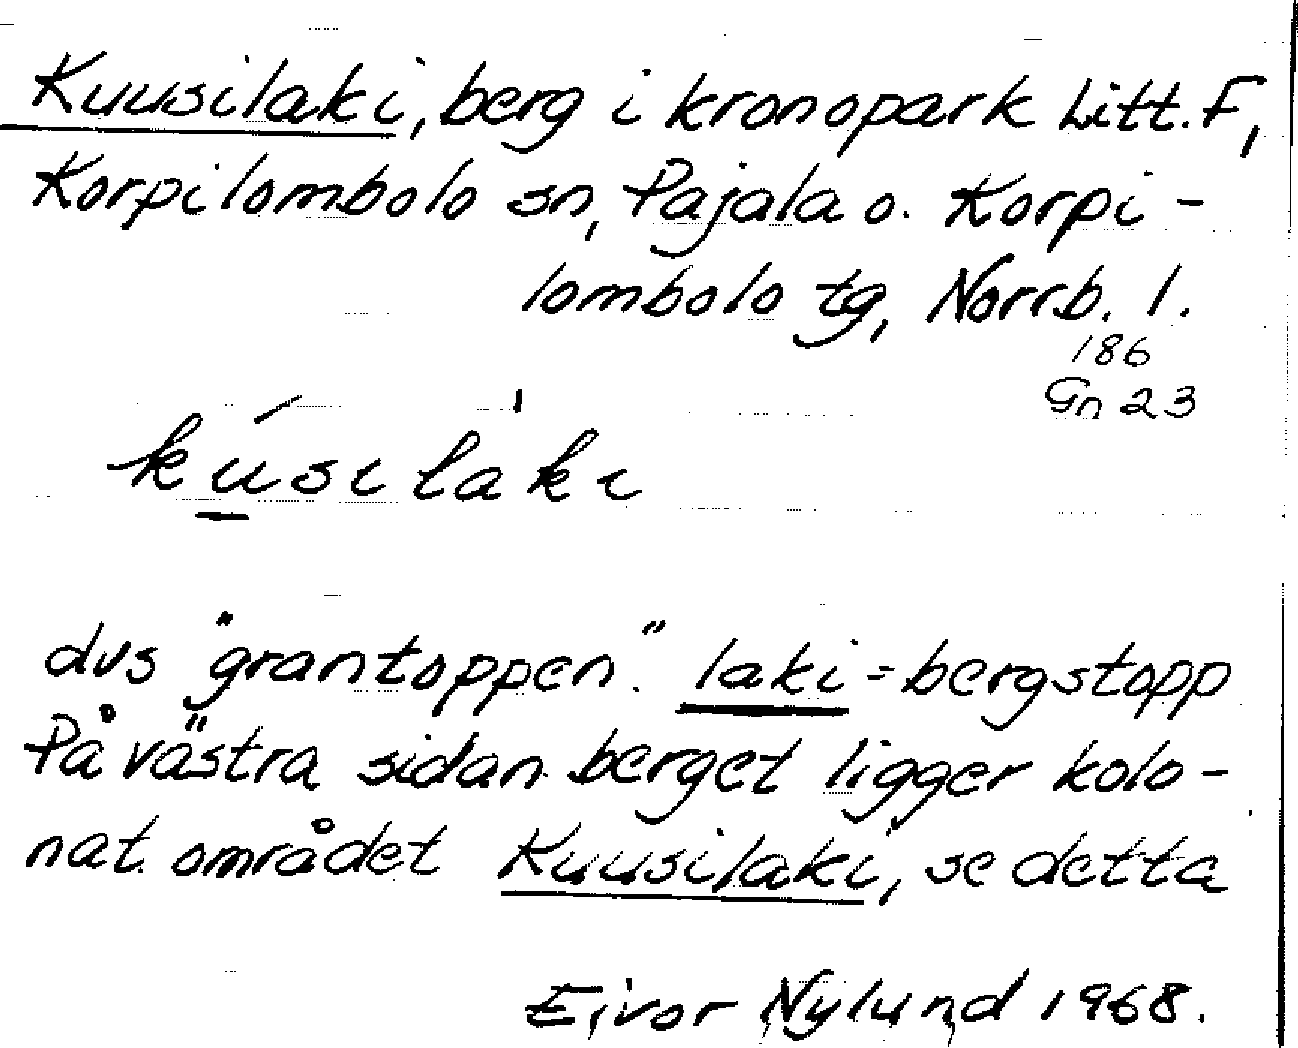 Kuusilaki, berg i kronopark Litt. F,
Korpilombolo sn, Pajala o. Korpi-
lombolo tg, Norrb. l.
186
Gn 23
kúsilàki
dvs "grantoppen". laki = bergstopp
På västra sidan berget ligger kolo-
nat. området Kuusilaki, se detta
Eivor Nylund 1968.